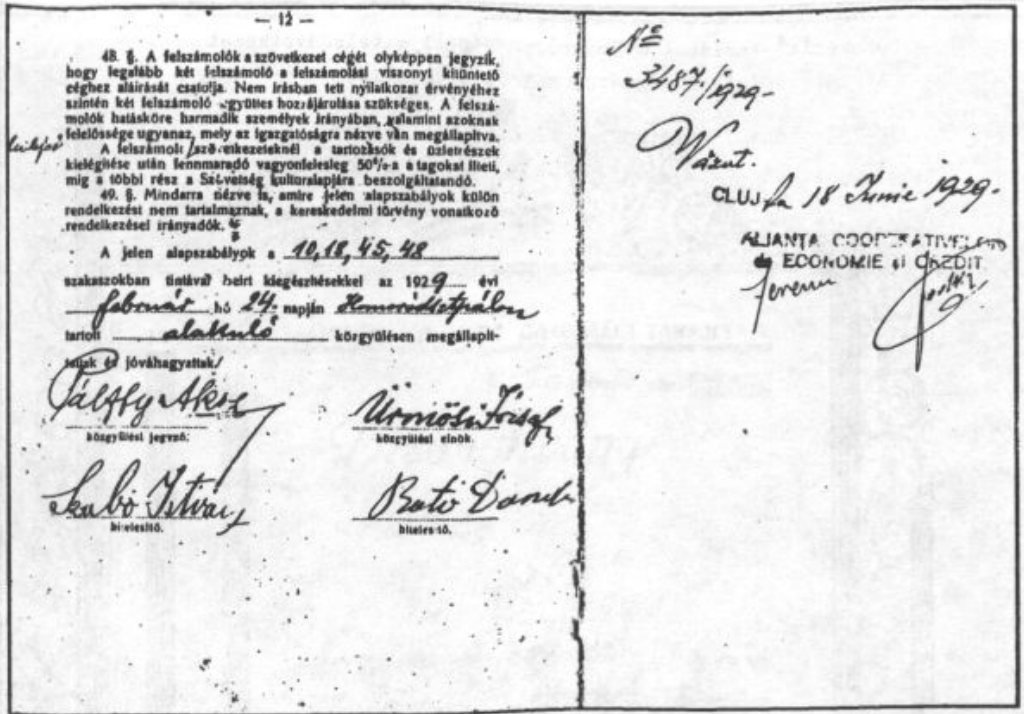 — 12 —
48. §. A felszámolók a szövetkezet cégét olyképpen jegyzik,
hogy legalább két felszámoló a felszámolási viszonyt kitüntető
céghez aláirását csatolja. Nem irásban tett nyilatkozat érvényéhez
szintén két felszámoló együttes hozzájárulása szükséges. A felszá-
molók hatásköre harmadik személyek irányában, valamint azoknak
felelőssége ugyanaz, mely az igazgatóságra nézve van megállapitva.
A felszámolt szövetkezeteknél a tartozások és üzletrészek
kielégitése után fennmaradó vagyonfelesleg 50%-a a tagokat illeti,
mig a többi rész a Szövetség kulturalapjára beszolgáltatandó.
49. §. Mindarra nézve is, amire jelen alapszabályok külön
rendelkezést nem tartalmaznak, a kereskedelmi törvény vonatkozó
rendelkezései irányadók.
A jelen alapszabályok a 10, 18, 45, 48
szakaszokban tintával beirt kiegészitésekkel az 1929 évi
február hó 24. napján Homoródszentpálon
tartott alakuló közgyülésen megállapit-
tattak és jóváhagyattak.
Pálffy Ákos
közgyülési jegyző.
Ürmösi József
közgyülési elnök.
Szabó István
hitelesitő.
Bató Dániel
hitelesitő.
No
3487/1929-
Văzut.
CLUJ la 18 Iunie 1929-
ALIANȚA COOPERATIVELOR
de ECONOMIE si CREDIT